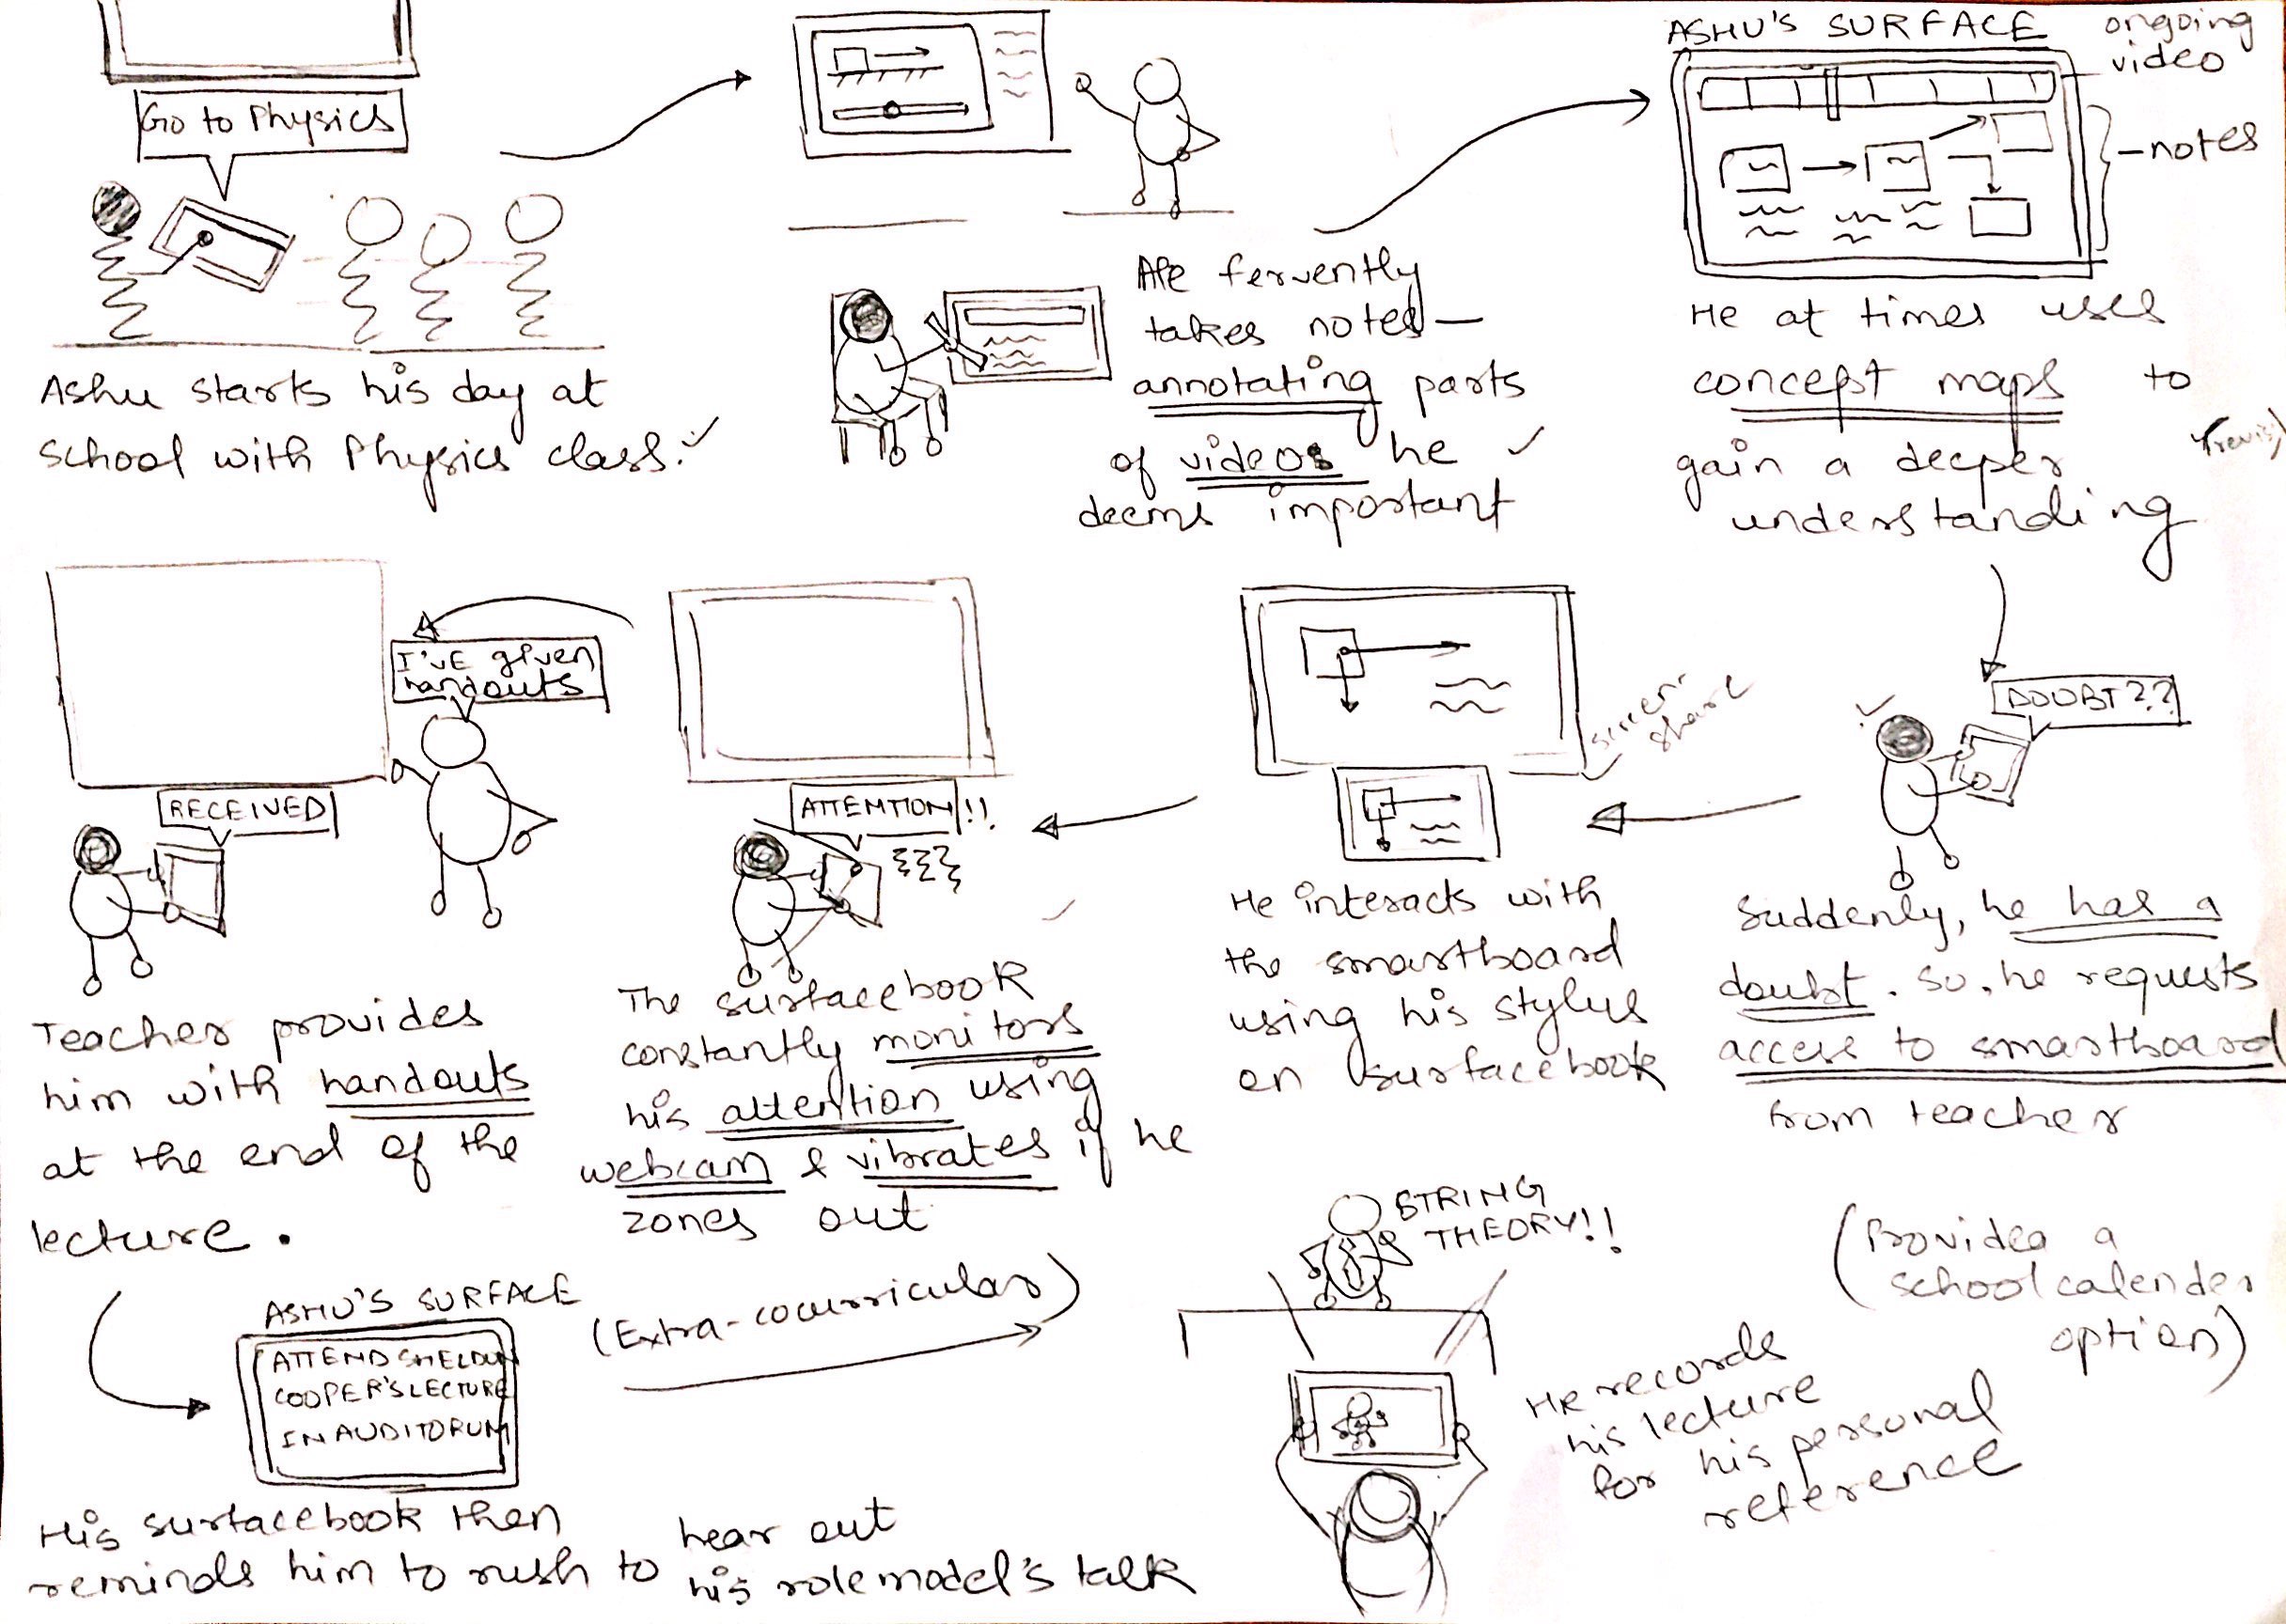 Go to Physics
Ashu starts his day at
school with Physics class.
He fervently
takes notes—
annotating parts
of videos he
deems important
ASHU'S SURFACE
ongoing
video
-notes
He at times uses
concept maps to
gain a deeper
understanding
DOUBT??
Suddenly, he has a
doubt. So, he requests
access to smartboard
from teacher
screen-
share
He interacts with
the smartboard
using his stylus
on surfacebook
ATTENTION!!
The surfacebook
constantly monitors
his attention using
webcam & vibrates if he
zones out
I'VE given
handouts
RECEIVED
Teacher provides
him with handouts
at the end of the
lecture.
ASHU'S SURFACE
ATTEND SHELDON
COOPER'S LECTURE
IN AUDITORUM
His surfacebook then
reminds him to rush to
hear out
his rolemodel's talk
(Extra-cocurricular)
STRING
THEORY!!
He records
his lecture
for his personal
reference
(Provides a
school calender
option)